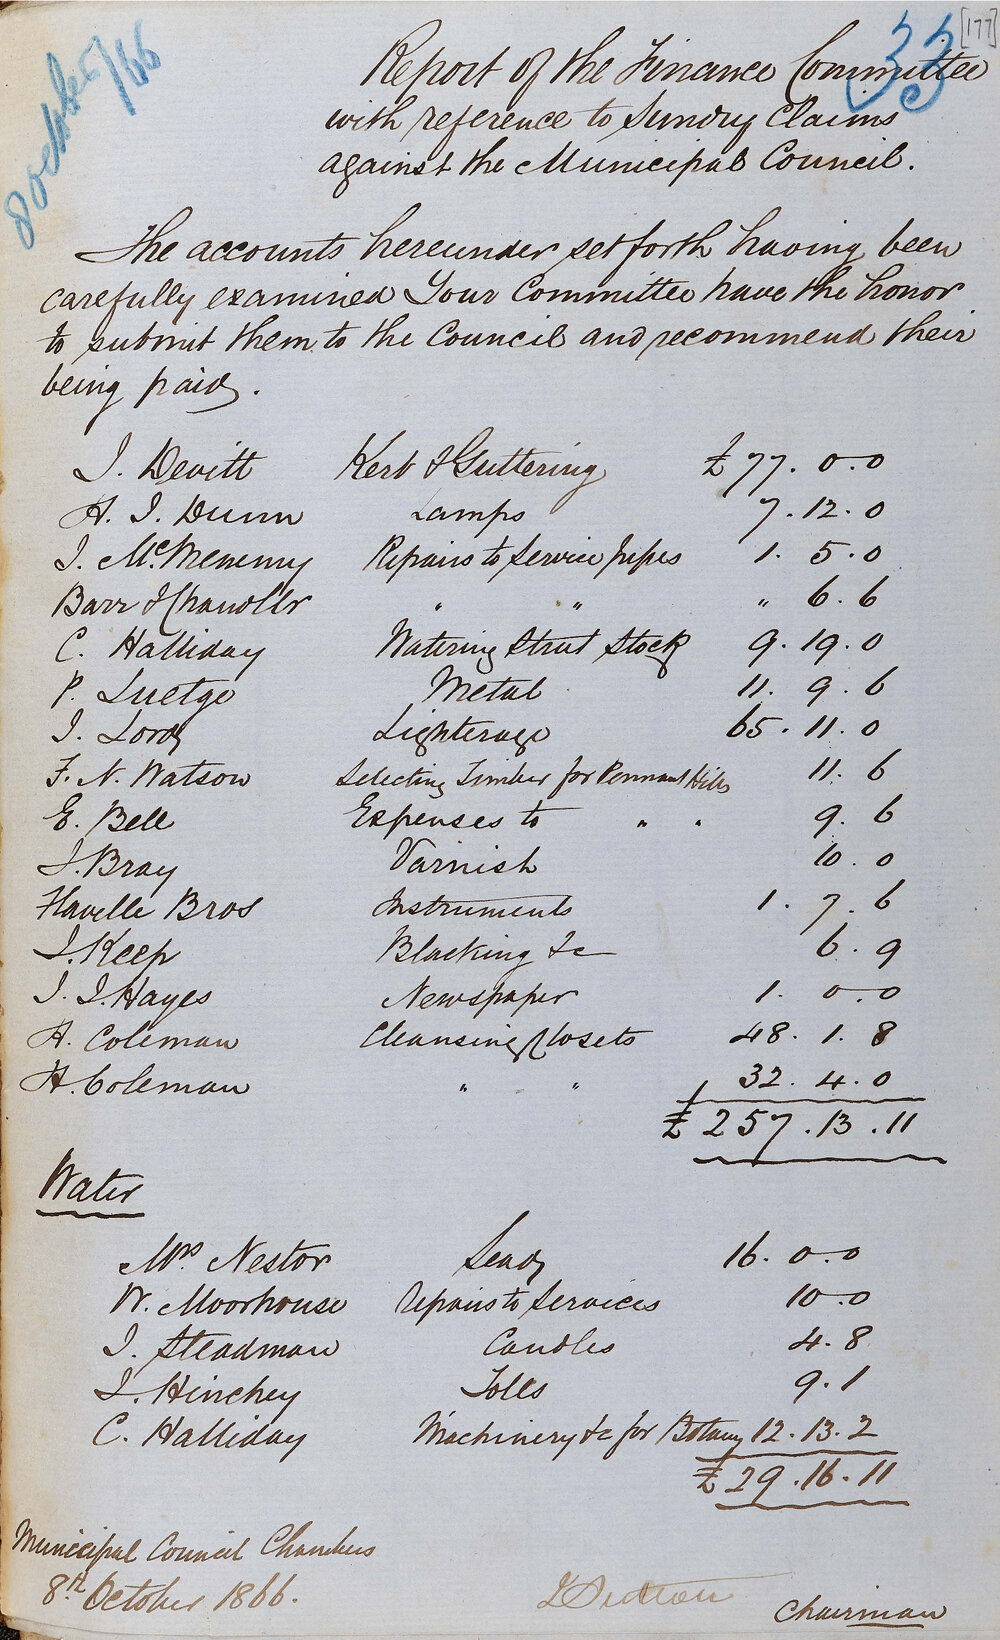 [177]
33
8 October/66
Report of the Finance Committee
with reference to Sundry Claims
against the Municipal Council.
The accounts hereunder set forth having been
carefully examined Your Committee have the honor
to submit them to the Council and recommend their
being paid.
J. Devitt Kerb & Guttering £77. 0. 0
H. J. Dunn Lamps 7. 12. 0
J. McMenemy Repairs to Service pipes 1. 5. 0
Barr & Chandler " " " 6. 6
C. Halliday Watering Street Stock 9. 19. 0
P. Luetge Metal 11. 9. 6
J. Lord Lighterage 65. 11. 0
F. N. Watson Selecting Timber for Pennant Hills 11. 6
E. Bell Expenses to " " 9. 6
J. Bray Varnish 10. 0
Flavelle Bros Instruments 1. 7. 6
J. Keep Blacking &c 6. 9
J. J. Hayes Newspaper 1. 0. 0
H. Coleman Cleansing Closets 48. 1. 8
H. Coleman " " 32. 4. 0
£ 257. 13. 11
Water
Mrs Nestor Lead 16. 0. 0
W. Moorhouse repairs to Services 10. 0
J. Steadman Candles 4. 8
J. Hinchey Tolls 9. 1
C. Halliday Machinery &c for Botany 12. 13. 2
£ 29. 16. 11
Municipal Council Chambers
8th October 1866.
Chairman